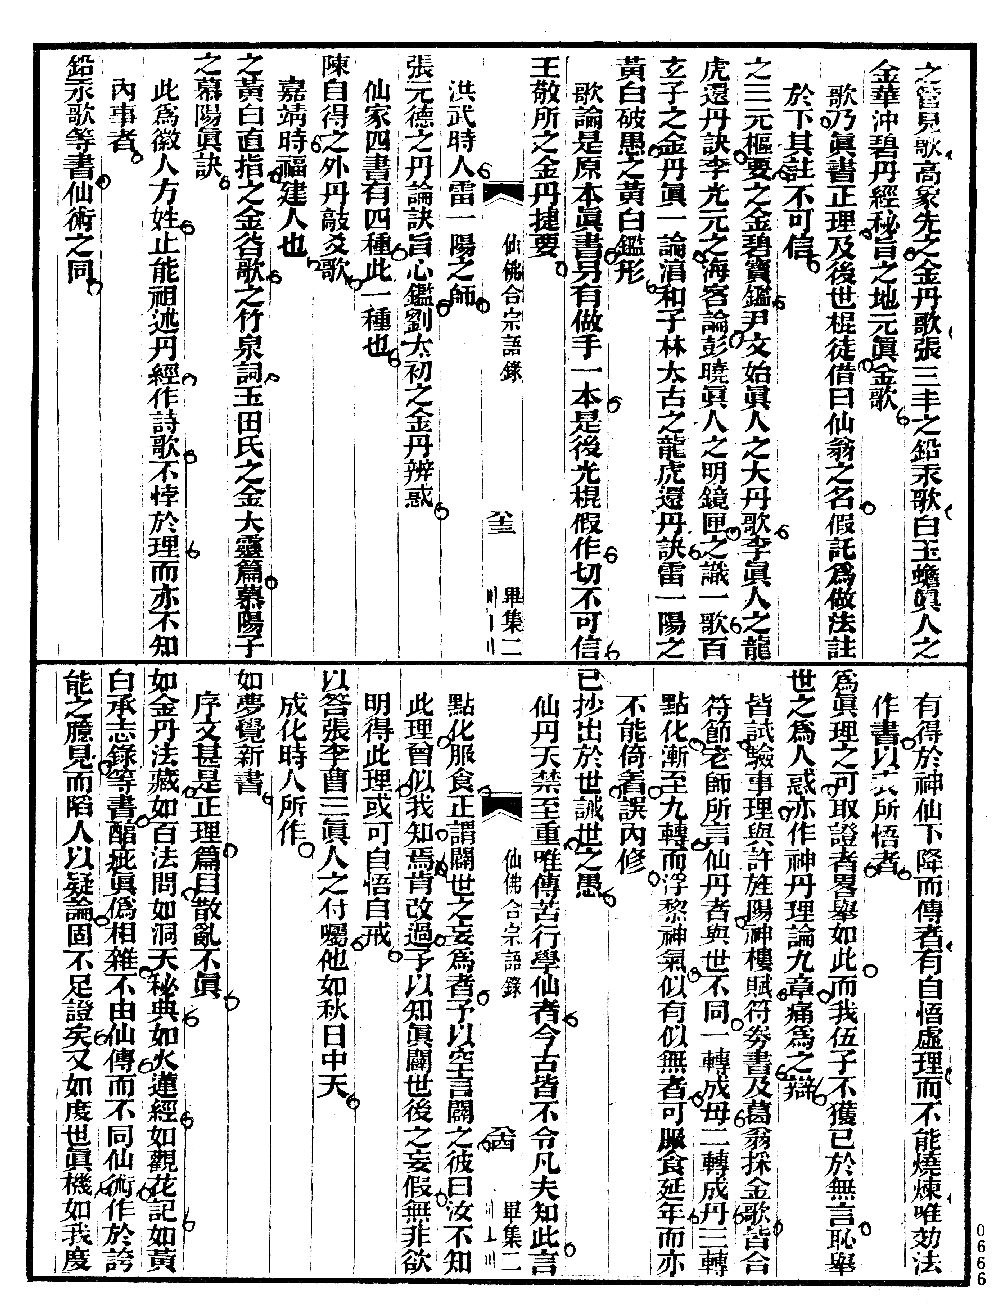 之管見歌高象先之金丹歌張三丰之鉛汞歌白玉蟾眞人之
金華沖碧丹經秘旨之地元眞金歌
歌乃眞書正理及後世棍徒借曰仙翁之名假託爲做法註
於下其註不可信
之三元樞要之金碧寶鑑尹文始眞人之大丹歌李眞人之龍
虎還丹訣李光元之海客論彭曉眞人之明鏡匣之識一歌百
玄子之金丹眞一論涓和子林太古之龍虎還丹訣雷一陽之
黃白破愚之黃白鑑形
歌論是原本眞書另有做手一本是後光棍假作切不可信
王敬所之金丹捷要
仙佛合宗語錄
全
畢集二
洪武時人雷一陽之師
張元德之丹論訣旨心鑑劉太初之金丹辨惑
仙家四書有四種此一種也
陳自得之外丹敲爻歌
嘉靖時福建人也
之黃白直指之金谷歌之竹泉詞玉田氏之金大靈篇慕陽子
之慕陽眞訣
此爲徽人方姓止能祖述丹經作詩歌不悖於理而亦不知
內事者
鉛汞歌等書仙術之同
有得於神仙下降而傳者有自悟虛理而不能燒煉唯効法
作書以衣所悟者
爲眞理之可取證者畧舉如此而我伍子不獲已於無言恥舉
世之爲人惑亦作神丹理論九章痛爲之辯
皆試驗事理與許旌陽神樓賦符劵書及葛翁採金歌皆合
符節老師所言仙丹者與世不同一轉成毋二轉成丹三轉
點化漸至九轉而浮黎神氣似有似無者可服食延年而亦
不能倚着誤內修
已抄出於世誡世之愚
仙丹天禁至重唯傳苦行學仙者今古皆不令凡夫知此言
仙佛合宗語錄
畢集二
點化服食正謂闢世之妄爲者予以空言闢之彼曰汝不知
此理曾似我知焉肯改過予以知眞闢世後之妄假無非欲
明得此理或可自悟自戒
以答張李曹三眞人之付囑他如秋日中天
成化時人所作
如夢覺新書
序文甚是正理篇目散亂不眞
如金丹法藏如百法問如洞天秘典如火蓮經如觀花記如黃
白承志錄等書醕疵眞僞相雜不由仙傳而不同仙術作於誇
能之臆見而䧟人以疑論固不足證矣又如度世眞機如我度
0666